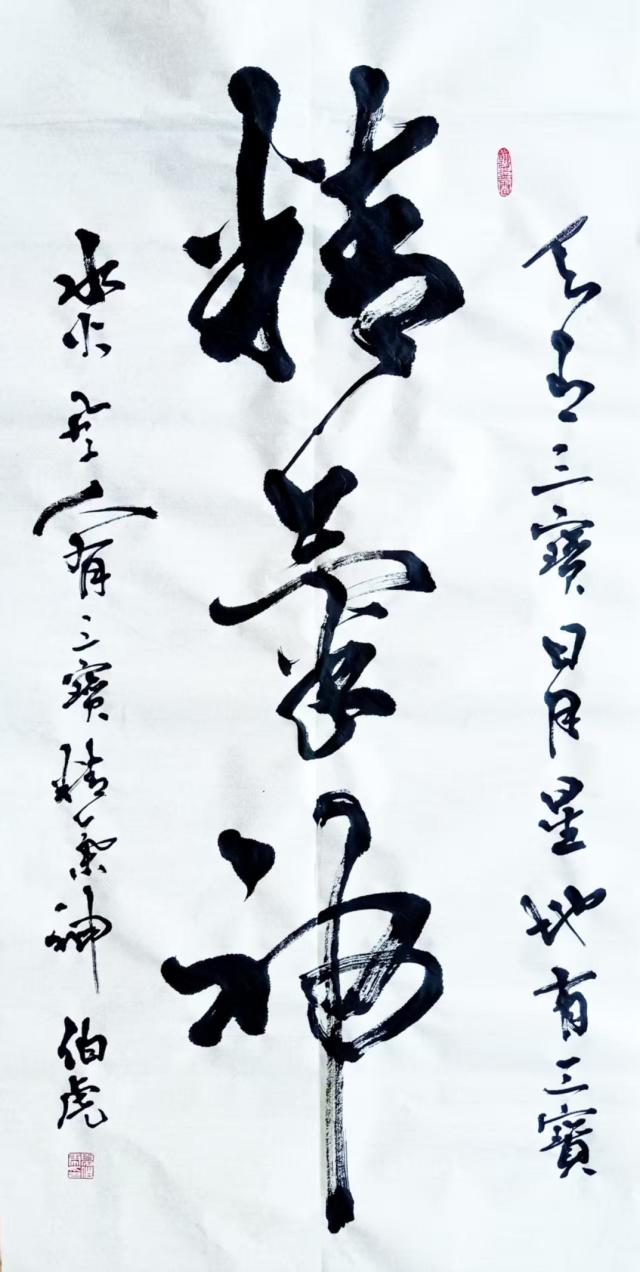 天有三寶日月星地有三寶
精氣神
水火風人有三寶精氣神
伯虎